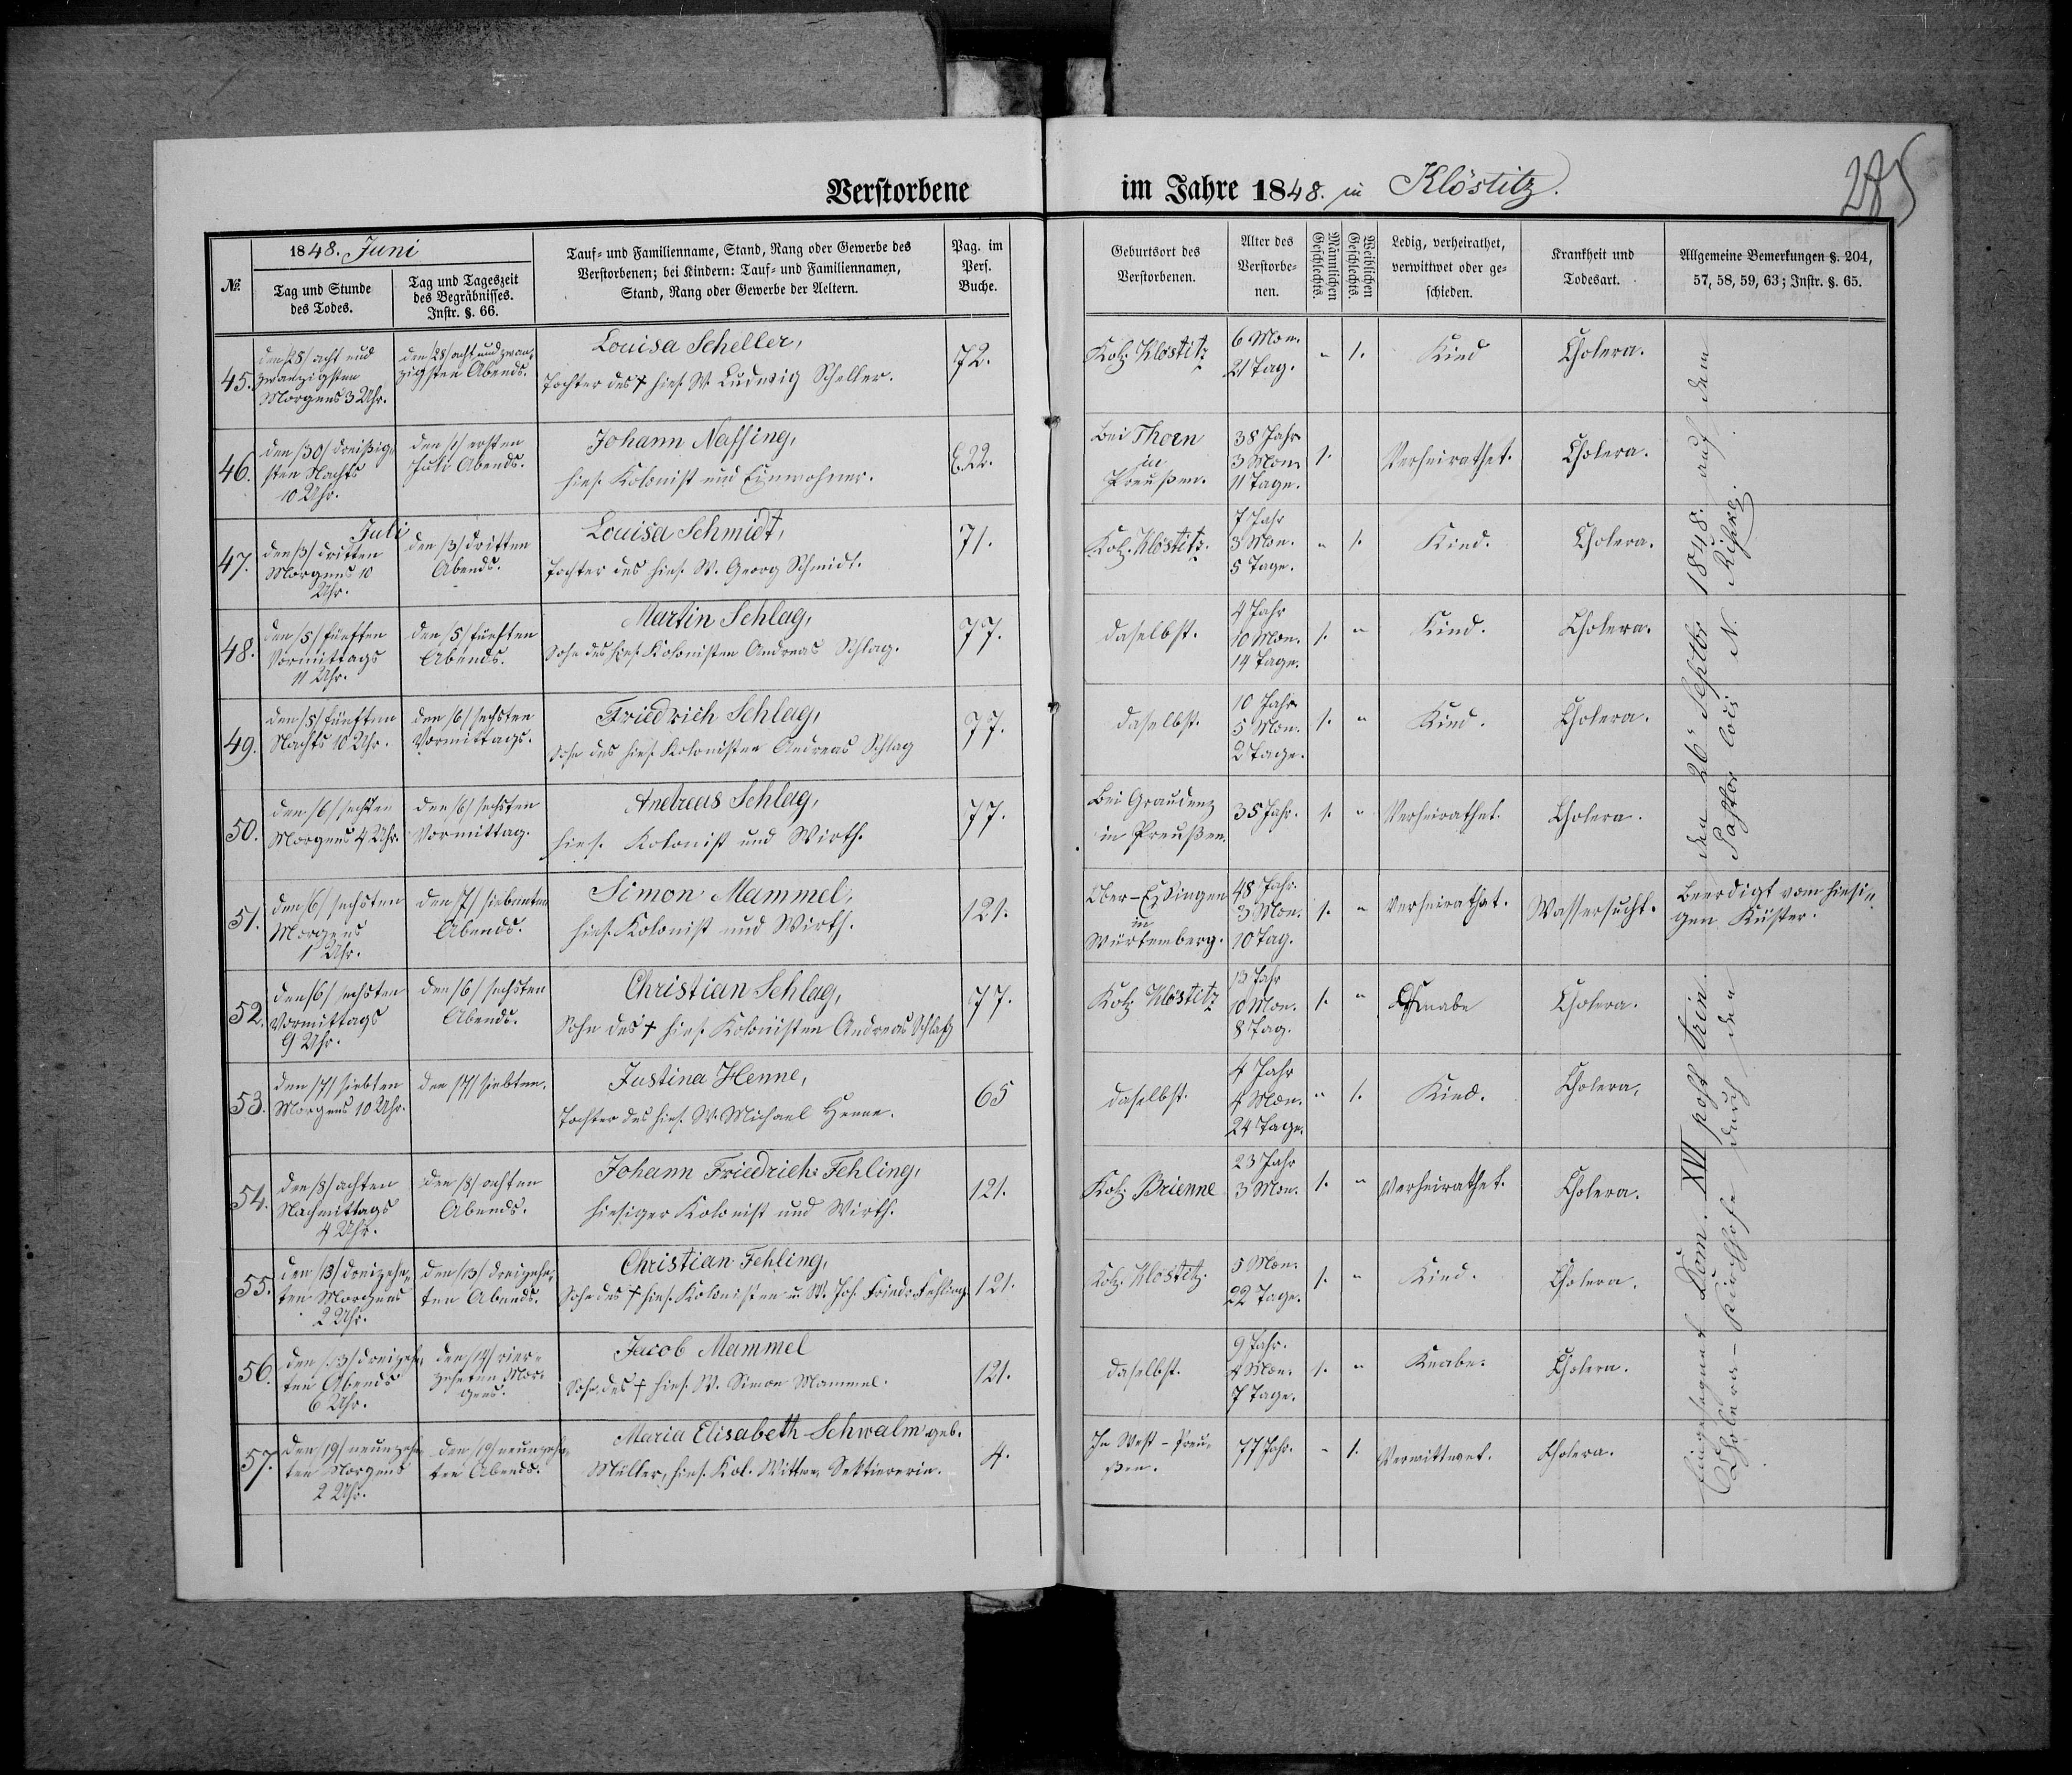 Verstorbene im Jahre 1848. in Klöstitz.
285
№.
1848. Juni
Tag und Stunde
des Todes.
Tag und Tageszeit
des Begräbnisses.
Instr. §. 66.
Tauf- und Familienname, Stand, Rang oder Gewerbe des
Verstorbenen; bei Kindern: Tauf- und Familiennamen,
Stand, Rang oder Gewerbe der Aeltern.
Pag. im
Pers.
Buche.
Geburtsort des
Verstorbenen.
Alter des
Verstorbe-
nen.
Männlichen
Geschlechts.
Weiblichen
Geschlechts.
Ledig, verheirathet,
verwittwet oder ge-
schieden.
Krankheit und
Todesart.
Allgemeine Bemerkungen §. 204,
57, 58, 59, 63; Instr. §. 65.
45.
den /28/ acht und
zwanzigsten
Morgens 3 Uhr.
den /28/ acht und zwan-
zigsten Abends.
Louisa Scheller,
Tochter des † hies. W. Ludwig Scheller.
72.
Kol. Klöstitz
6 Mon.
21 Tag.
" 1.
Kind
Cholera.
46.
den /30/ dreißig-
sten Nachts
10 Uhr.
den /1/ ersten
Juli Abends.
Johann Nassing,
hies. Kolonist und Einwohner.
E.22.
bei Thorn
in
Preußen.
38 Jahr
3 Mon.
11 Tage.
1.
Verheirathet.
Cholera.
Juli
47.
den /3/ dritten
Morgens 10
Uhr.
den /3/ dritten
Abends.
Louisa Schmidt,
Tochter des hies. W. Georg Schmidt.
71.
Kol. Klöstitz.
7 Jahr
3 Mon.
5 Tage.
" 1.
Kind.
Cholera.
48.
den /5/ fünften
Vormittags
11 Uhr.
den /5/ fünften
Abends.
Martin Schlag,
Sohn des hies. Kolonisten Andreas Schlag.
77.
daselbst.
4 Jahr
10 Mon.
14 Tage.
1. "
Kind.
Cholera.
49.
den /5/ fünften
Nachts 10 Uhr.
den /6/ sechsten
Vormittags.
Friedrich Schlag,
Sohn des hies. Kolonisten Andreas Schlag
77.
daselbst.
10 Jahr
5 Mon.
2 Tage.
1. "
Kind.
Cholera.
50.
den /6/ sechsten
Morgens 4 Uhr.
den /6/ sechsten
Vormittag.
Andreas Schlag,
hies. Kolonist und Wirth.
77.
bei Graudenz
in Preußen.
35 Jahr.
1. "
Verheirathet.
Cholera.
51.
den /6/ sechsten
Morgens
1 Uhr.
den /7/ siebenten
Abends.
Simon Mammel,
hies. Kolonist und Wirth.
121.
Ober-Eßlingen
in
Würtemberg.
48 Jahr.
3 Mon.
10 Tag.
1. "
verheirathet.
Wassersucht.
Beerdigt vom hiesi-
gen Küster.
52.
den /6/ sechsten
Vormittags
9 Uhr.
den /6/ sechsten
Abends.
Christian Schlag,
Sohn des † hies. Kolonisten Andreas Schlag
77.
Kol. Klöstitz
13 Jahr
10 Mon.
8 Tag.
1. "
Knabe
Cholera.
53.
den /7/ siebten
Morgens 10 Uhr.
den /7/ siebten.
Justina Henne,
Tochter des hies. W. Michael Henne.
65
daselbst.
4 Jahr
4 Mon.
24 Tage.
" 1.
Kind.
Cholera,
54.
den /8/ achten
Nachmittags
4 Uhr.
den /8/ achten
Abends.
Johann Friedrich Fehling,
hiesiger Kolonist und Wirth.
121.
Kol. Brienne
23 Jahr
3 Mon.
1. "
Verheirathet.
Cholera.
55.
den /13/ dreizehn-
ten Morgens
2 Uhr.
den /13/ dreizehn-
ten Abends.
Christian Fehling,
Sohn des † hies. Kolonisten u. W. Joh. Friedr. Fehling
121.
Kol. Klöstitz.
5 Mon.
22 Tage.
1. "
Kind.
Cholera.
56.
den /13/ dreizehn-
ten Abends
6 Uhr.
den /14/ vier-
zehnten Mor-
gens.
Jacob Mammel
Sohn des † hies. W. Simon Mammel.
121.
daselbst.
9 Jahr.
4 Mon.
7 Tage.
1. "
Knabe.
Cholera.
57.
den /19/ neunzehn-
ten Morgens
2 Uhr.
den /19/ neunzehn-
ten Abends.
Maria Elisabeth Schwalm geb.
Müller, hies. Kol. Wittwe, Sektiererin.
4.
In West-Preu-
ßen.
77 Jahr.
" 1.
Verwittwet.
Cholera.
Eingesegnet Dom. XVI post Trin. den 26. Septbr 1848. auf dem
Cholera-Kirchhofe durch den Pastor